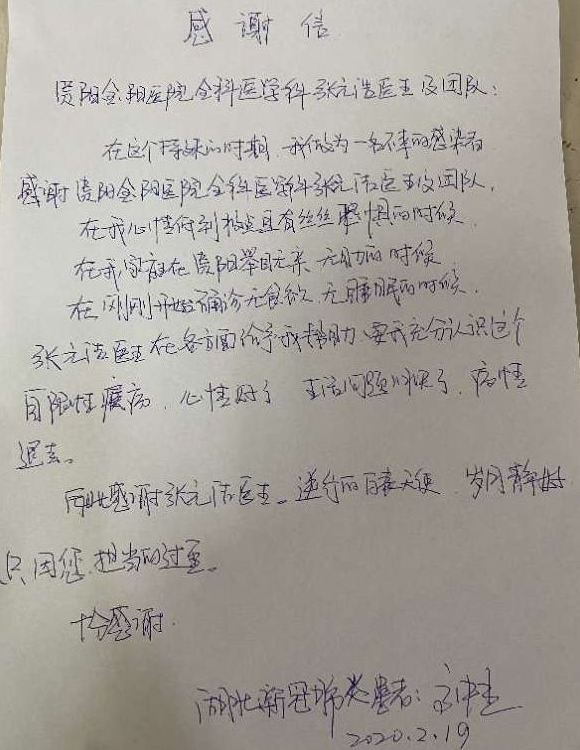 感谢信
贵阳金阳医院全科医学科张元浩医生及团队：
在这个特殊的时期，我做为一名不幸的感染者
感谢贵阳金阳医院全科医学科张元浩医生及团队。
在我心情低到极点且有丝丝惧的时候，
在我家庭在贵阳举目无亲、无助的时候，
在刚刚开始确诊无食欲、无睡眠的时候，
张元浩医生在各方面给予我帮助、要我充分认识这个
自限性疾病，心情好了，生活问题解决了，病情
退去。
同此感谢张元浩医生。逆行的白衣天使，岁月静好
只因您担当的过重。
十分感谢。
湖北新冠肺炎患者：
2020.2.19